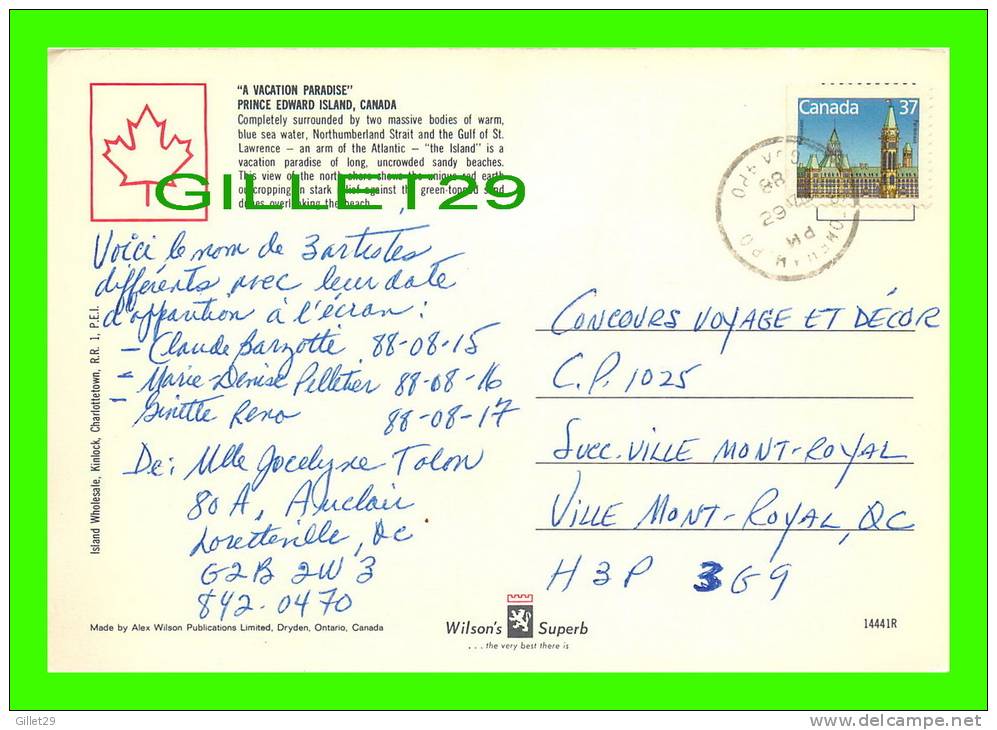 "A VACATION PARADISE"
PRINCE EDWARD ISLAND, CANADA
Completely surrounded by two massive bodies of warm,
blue sea water, Northumberland Strait and the Gulf of St.
Lawrence – an arm of the Atlantic – "the Island" is a
vacation paradise of long, uncrowded sandy beaches.
This view of the north shore shows the unique red earth
outcropping in stark relief against the green-topped sand
dunes overlooking the beach.
GILLET29
Canada 37
88
PM
Voici le nom de 3 artistes
différents avec leur date
d'apparition à l'écran :
- Claude Barzotti 88-08-15
- Marie-Denise Pelletier 88-08-16
- Ginette Reno 88-08-17
De: Mlle Jocelyne Talon
80 A, Auclair
Loretteville, Qc
G2B 2W3
842-0470
CONCOURS VOYAGE ET DÉCOR
C.P. 1025
SUCC. VILLE MONT-ROYAL
VILLE MONT-ROYAL, QC
H3P 3G9
Island Wholesale, Kinlock, Charlottetown, R.R. 1, P.E.I.
Made by Alex Wilson Publications Limited, Dryden, Ontario, Canada
Wilson's Superb
... the very best there is
14441R
Gillet29
delcampe.net